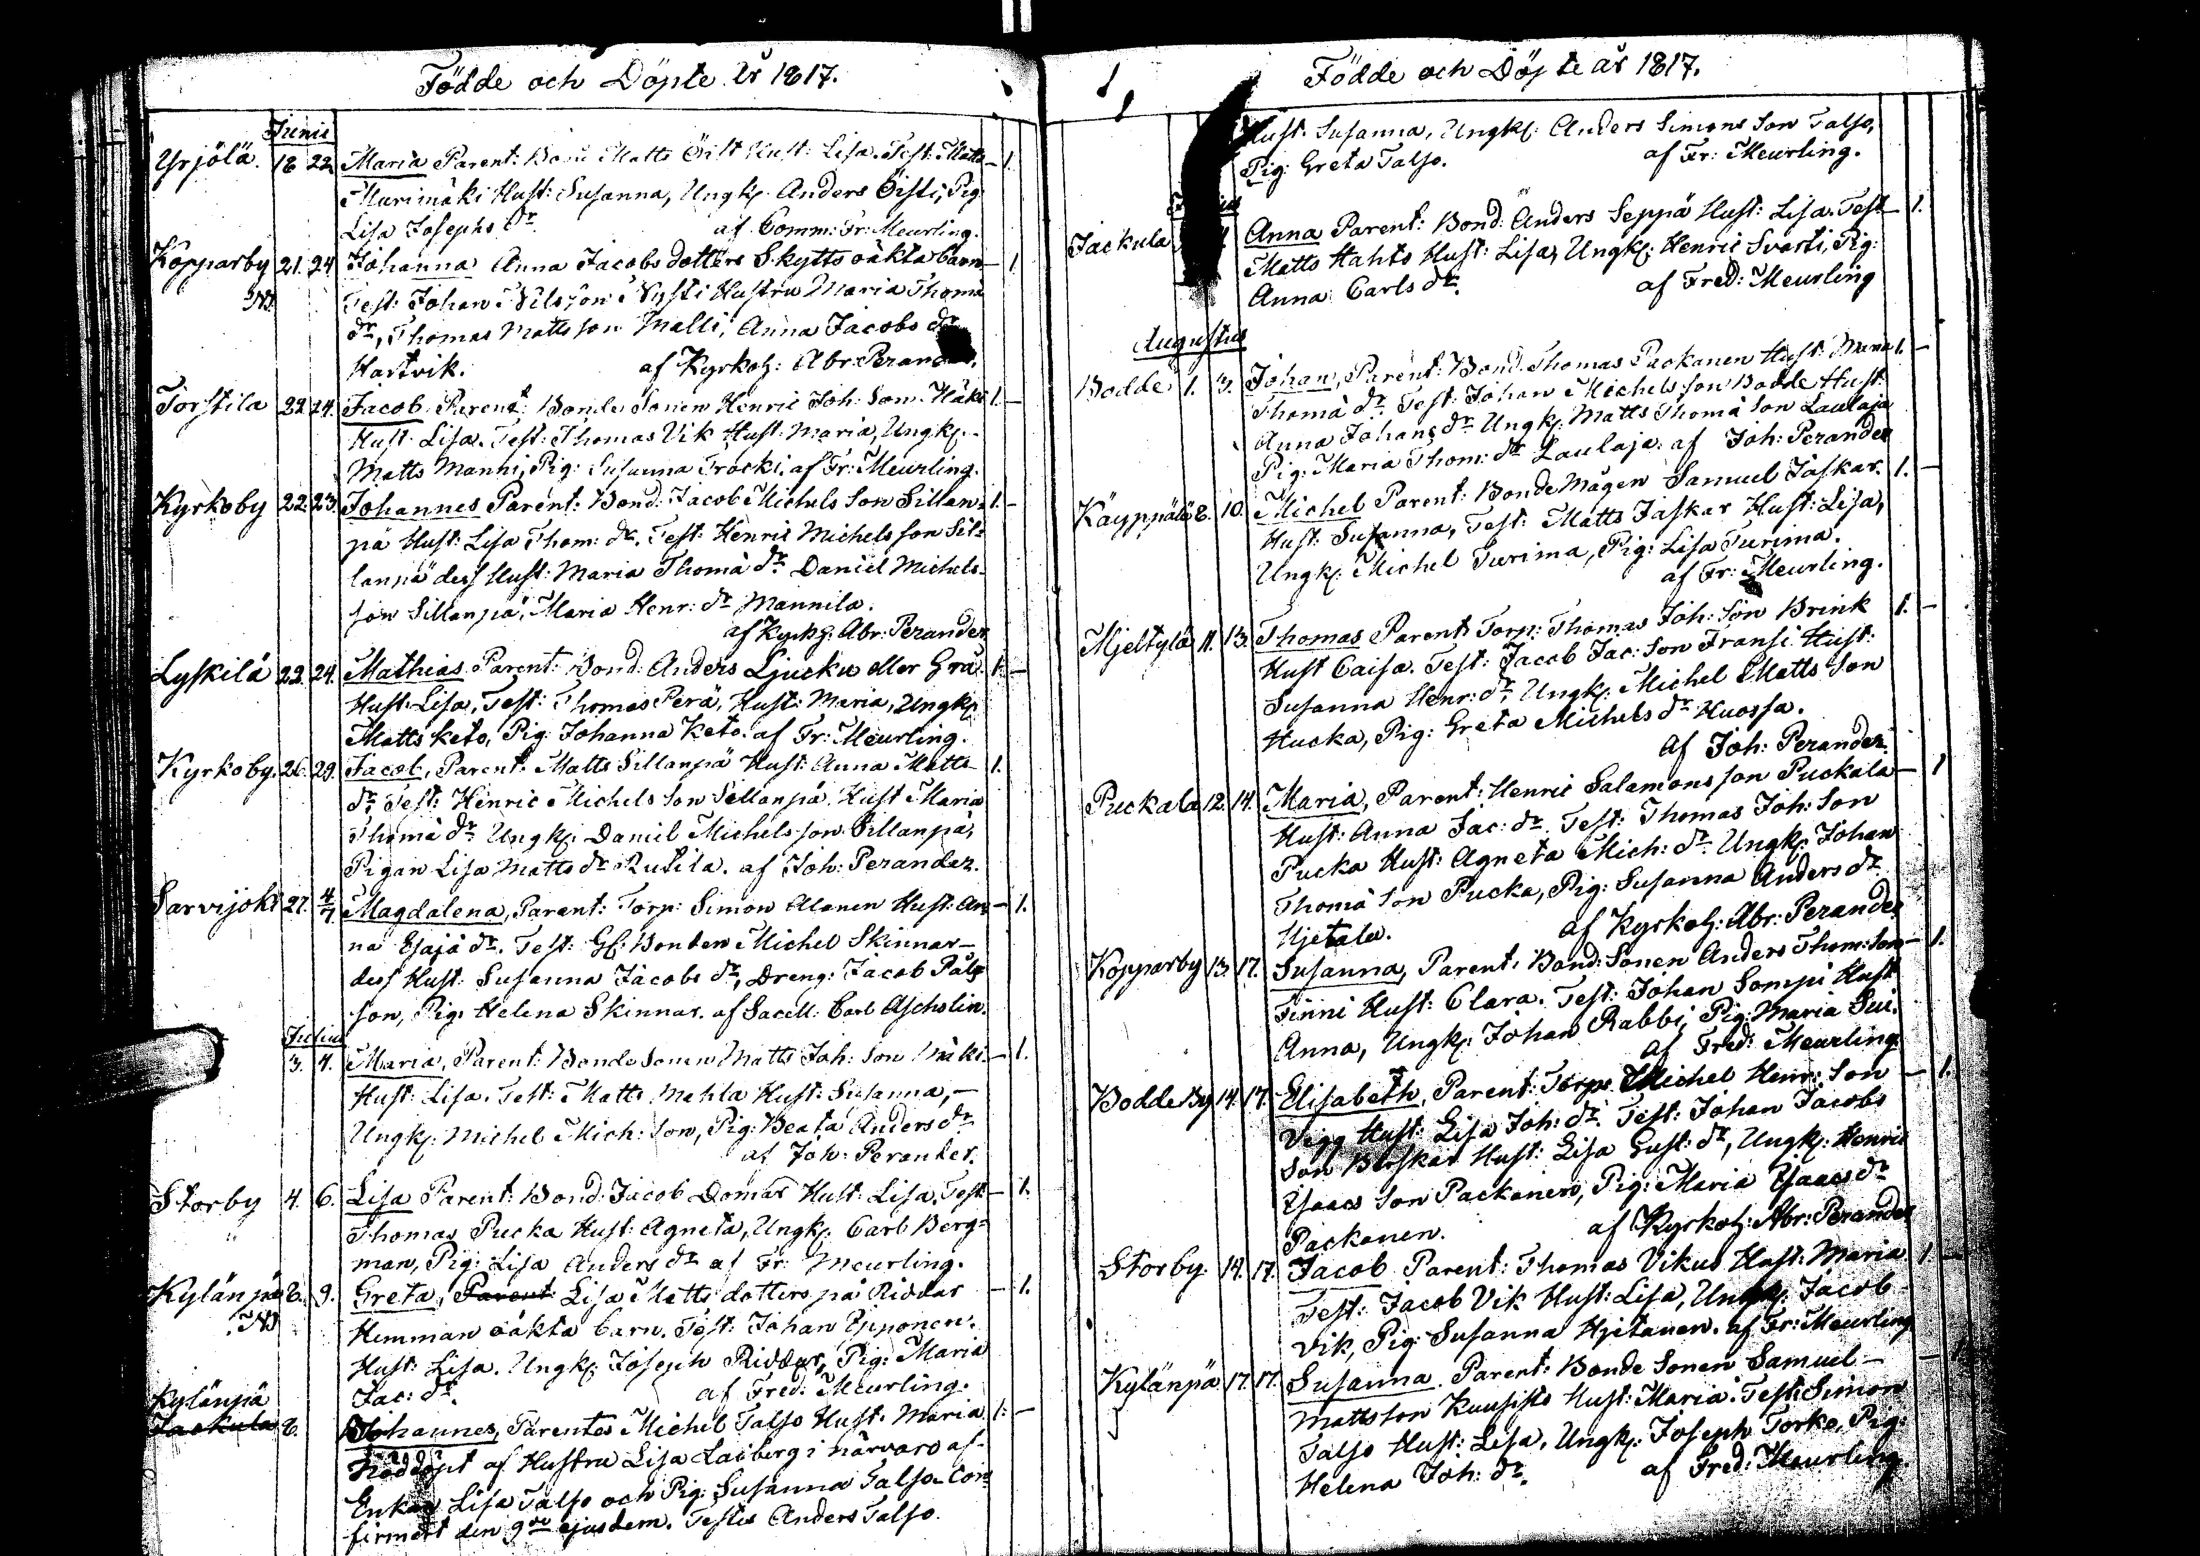 Födde och Döpte år 1817.
Junii
Yrjölä. 18 22 Maria Parent: Bond Matts Öist Hust: Lisa. Test: Matts — 1.
Murimäki Hust: Susanna, Ungk: Anders Öisti, Pig
Lisa Josephs dr. af Comm: Fr: Meurling.
Kopparby 21. 24 Johanna Anna Jacobs dotters Skytts oäkta barn — 1
Test: Johan Nilsson Nysti Hustru Maria Thomæ
dr, Thomas Mattsson Malli, Anna Jacobs dr
Hartvik. af Kyrkoh: Abr: Perander.
Torstila 22 24. Jacob Parent: Bonde Sonen Henric Joh: Son Häki 1. —
Hust: Lisa. Test: Thomas Vik Hust: Maria, Ungk:
Matts Manni, Pig: Susanna Frocki. af Fr: Meurling.
Kyrkoby 22. 23. Johannes Parent: Bond: Jacob Michels Son Sillan= 1. —
pä Hust: Lisa Thom: dr. Test: Henric Michels son Sil=
lanpä dess Hust: Maria Thomä dr. Daniel Michels-
son Sillanpä, Maria Henr: dr Mannila.
af Kyrkh: Abr: Perander
Lyskilä 23. 24. Mathias Parent: Bond: Anders Ljucku eller Grå 1. —
Hust: Lisa, Test: Thomas Perä, Hust: Maria, Ungk:
Matts Keto, Pig Johanna Keto. af Fr: Meurling.
Kyrkoby. 26. 29. Jacob, Parent: Matts Sillanpä Hust: Anna Matts — 1.
dr, Test: Henric Michels Son Sillanpä, Hust Maria
Thomä dr Ungk: Daniel Michels son Sillanpä,
Pigan Lisa Matts dr Rutila. af Joh: Perander.
Sarvijoki 27. 4/7 Magdalena, Parent: Torp: Simon Alanen Hust: An= — 1.
na Esajä dr. Test: Gl: Bonden Michel Skinnar —
dess Hust: Susanna Jacobs dr, Dreng: Jacob Påls
son, Pig: Helena Skinnar. af Sacell: Carl Ascholin.
Julius
3. 4. Maria, Parent: Bonde Sonen Matts Joh: Son Mäki — 1.
Hust: Lisa. Test: Matts Mahla Hust: Susanna, —
Ungk: Michel Mich: Son, Pig: Beata Anders dr
af Joh: Perander.
Storby 4. 6. Lisa Parent: Bond: Jacob Domar Hust: Lisa, Test — 1.
Thomas Pucka Hust: Agneta, Ungk: Carl Berg=
man, Pig: Lisa Anders dr af Fr: Meurling.
Kylänpä 8. 9. Greta, Parent: Lisa Matts dotters på Riddar — 1.
Hemman oäkta barn. Test: Johan Epponen.
Hust: Lisa. Ungk: Joseph Riddar, Pig: Maria
Jac: dr. af Fred: Meurling.
Kylänpä
Jackula 8. Johannes, Parentes Michel Talso Hust: Maria 1. —
Nöddöpt af Hustru Lisa Laiberg i närvaro af
Enkan Lisa Talso och Pig: Susanna Talso. Con=
firmert den 9de ejusdem. Testis Anders Talso.
Födde och Döpte år 1817.
Hust: Susanna, Ungk: Anders Simons Son Talso,
Pig: Greta Talso. af Fr: Meurling.
Jackula Anna Parent: Bond: Anders Seppä Hust: Lisa. Test — 1.
Matts Hahto Hust: Lisa, Ungk: Henric Svarti, Pig:
Anna Carls dr. af Fred: Meurling
Augustus
Bodde 1. 3. Johan, Parent: Bond. Thomas Packanen Hust: Maria 1. —
Thomä dr. Test: Johan Michels son Bodde Hust:
Anna Johans dr Ungk: Matts Thomä Son Laulaja
Pig: Maria Thom: dr Laulaja. af Joh: Perander
Käyppälä 8. 10. Michel Parent: Bonde Mågen Samuel Jaskar. 1. —
Hust: Susanna, Test: Matts Jaskar Hust: Lisa,
Ungk: Michel Turima, Pig: Lisa Turima.
af Fr: Meurling.
Hjeltylä 11. 13. Thomas Parent Torp: Thomas Joh: Son Brink 1. —
Hust Caisa. Test: Jacob Jac: Son Fransi Hust:
Susanna Henr: dr, Ungk: Michel Matts Son
Hucka, Pig: Greta Michels dr Huossa.
af Joh: Perander.
Puckala 12. 14. Maria, Parent: Henric Salamons son Puckala — 1
Hust: Anna Jac: dr. Test: Thomas Joh: Son
Pucka Hust: Agneta Mich: dr. Ungk: Johan
Thomä Son Pucka, Pig: Susanna Anders dr
Hjetala. af Kyrkoh: Abr: Perander
Kopparby 13. 17. Susanna, Parent: Bond: Sonen Anders Thom: Son — 1.
Finni Hust: Clara. Test: Johan Sompi Hust
Anna, Ungk: Johan Rabbi, Pig: Maria Sui.
af Fred: Meurling.
Bodde By 14. 17. Elisabeth, Parent: Torp: Michel Henr: Son — 1.
Vigg Hust: Lisa Joh: dr. Test: Johan Jacobs
Son Buskar Hust: Lisa Gust: dr, Ungk: Henric
Esaacs Son Packanen, Pig: Maria Esaacs dr
Packanen. af Kyrkoh: Abr: Perander
Storby. 14. 17. Jacob Parent: Thomas Vikus Hust: Maria 1 —
Test: Jacob Vik Hust: Lisa, Ungk: Jacob
Vik, Pig: Susanna Hjetanen. af Fr: Meurling
Kylänpä 17. 17. Susanna. Parent: Bonde Sonen Samuel — — 1
Mattsson Kuusisto Hust: Maria. Test: Simon
Talso Hust: Lisa, Ungk: Joseph Torko, Pig:
Helena Joh: dr. af Fred: Meurling.